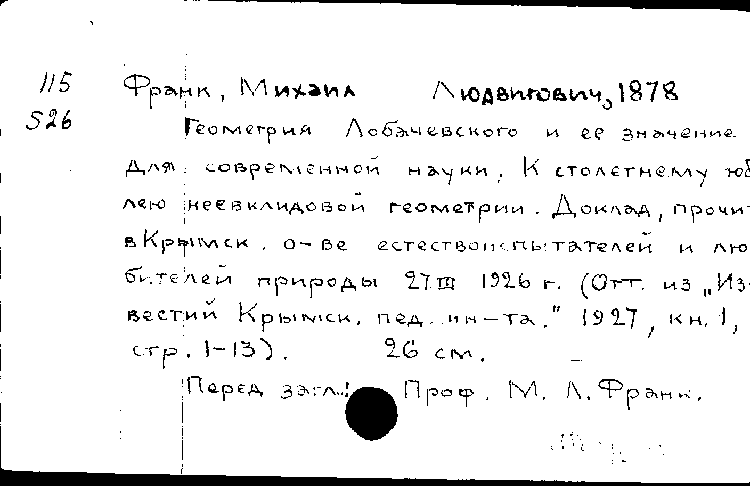 115 Франк, Михаил Людвигович, 1878
526 Геометрия Лобачевского и ее значение
для современной науки. К столетнему юб
лею неевклидовой геометрии. Доклад, прочит
в Крымск. о-ве естествоиспытателей и лю-
бителей природы 27 III 1926 г. (Отт. из „Из-
вестий Крымск. пед. ин-та." 1927, кн. 1,
стр. 1-13). 26 см.
Перед загл.: Проф. М. Л. Франк.